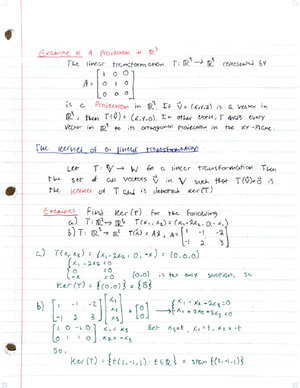 Example: A Projection in ℝ³
The linear transformation T: ℝ³ → ℝ³ represented by
A = [1 0 0
0 1 0
0 0 0]
is a Projection in ℝ³. If v⃗ = (x,y,z) is a vector in
ℝ³, then T(v⃗) = (x,y,0). In other words, T maps every
vector in ℝ³ to its orthogonal projection in the xy-Plane.
The kernel of a linear transformation
Let T: V → W be a linear transformation. Then
the set of all vectors v⃗ in V such that T(v⃗)=0⃗ is
the kernel of T and is denoted ker(T)
Example: Find ker(T) for the following
a) T: ℝ²→ℝ³ T(x₁,x₂) = (x₁-2x₂, 0, -x₁)
b) T: ℝ³→ℝ² T(x⃗) = Ax⃗, A = [1 -1 -2
-1 2 3]
a) T(x₁,x₂) = (x₁-2x₂, 0, -x₁) = (0,0,0)
{x₁-2x₂=0
0=0
-x₁=0 (0,0) is the only solution, so
ker(T) = {(0,0)} = {0⃗}
b) [1 -1 -2
-1 2 3] [x₁
x₂
x₃] = [0
0] → {x₁-x₂-2x₃=0
-x₁+2x₂+3x₃=0
[1 0 -1 0 x₁=x₃ let x₃=t, x₁=t, x₂=-t
0 1 1 0] x₂=-x₃
So,
ker(T) = {t(1,-1,1): t∈ℝ} = span{(1,-1,1)}